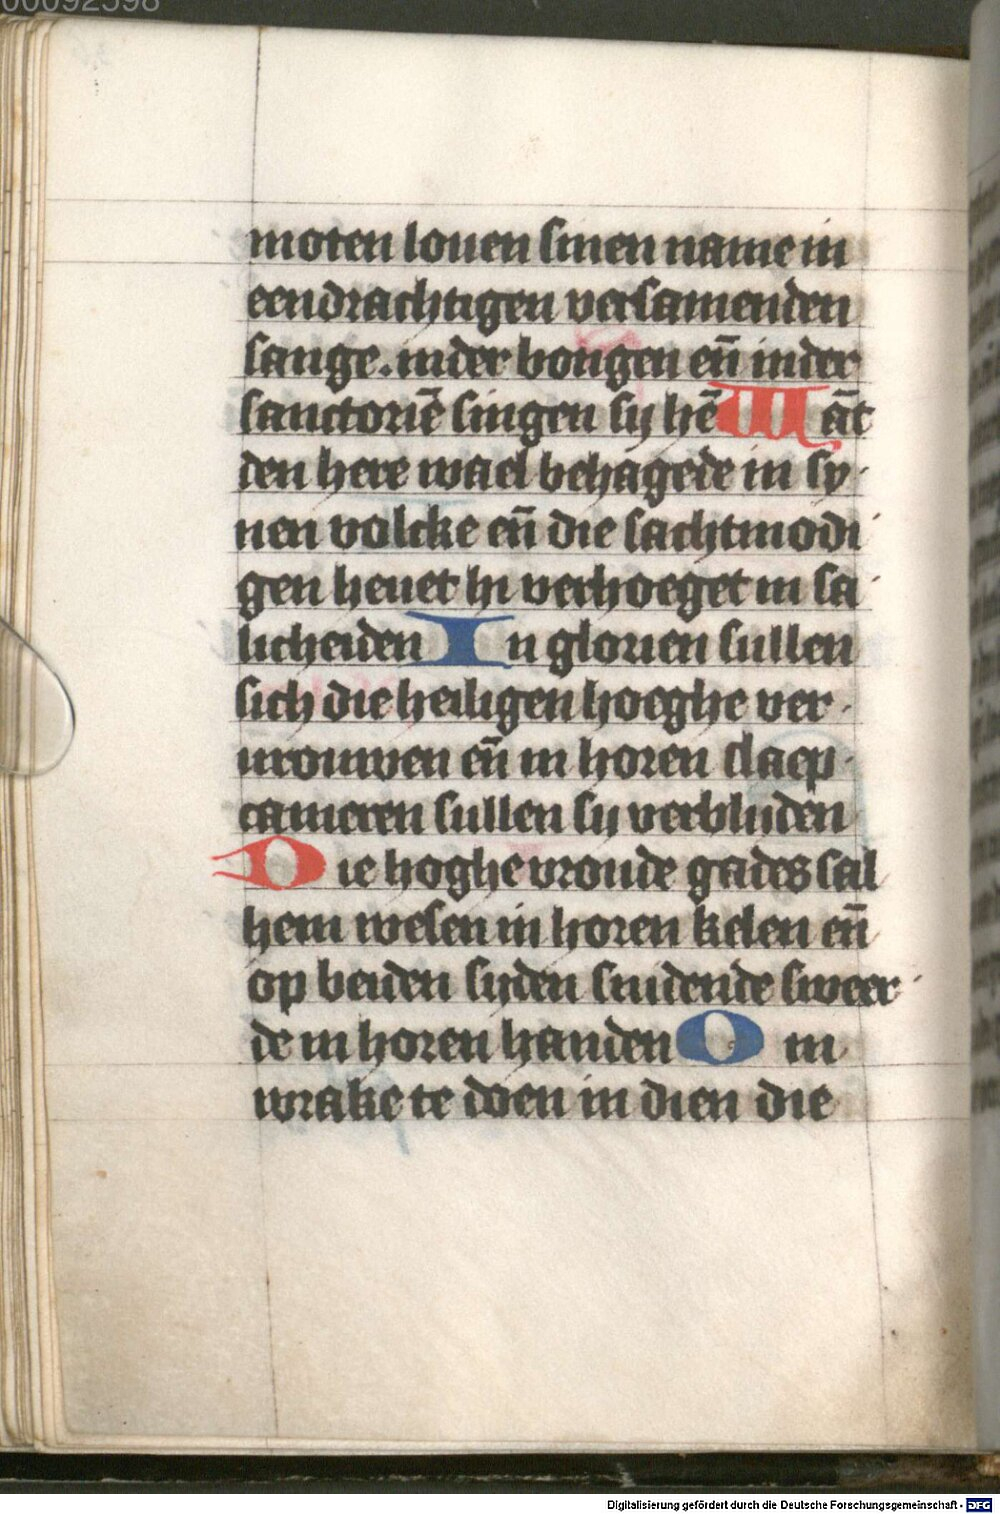 00092598
moten louen sinen name in
eendrachtigen versamenden
sange. inder bongen en̄ inder
sanctoriē singen sy hē Wāt
den here wael behagede in sy
nen volcke en̄ die sachtmodi
gen heuet hi verhoeget in sa
licheiden In glorien sullen
sich die heiligen hoeghe ver
urouwen en̄ in horen slaep
cameren sullen sy verblijden
Die hoghe vroude gades sal
hem wesen in horen kelen en̄
op beiden syden snidende sweer
de in horen handen Om
wrake te doen in dien die
Digitalisierung gefördert durch die Deutsche Forschungsgemeinschaft - DFG